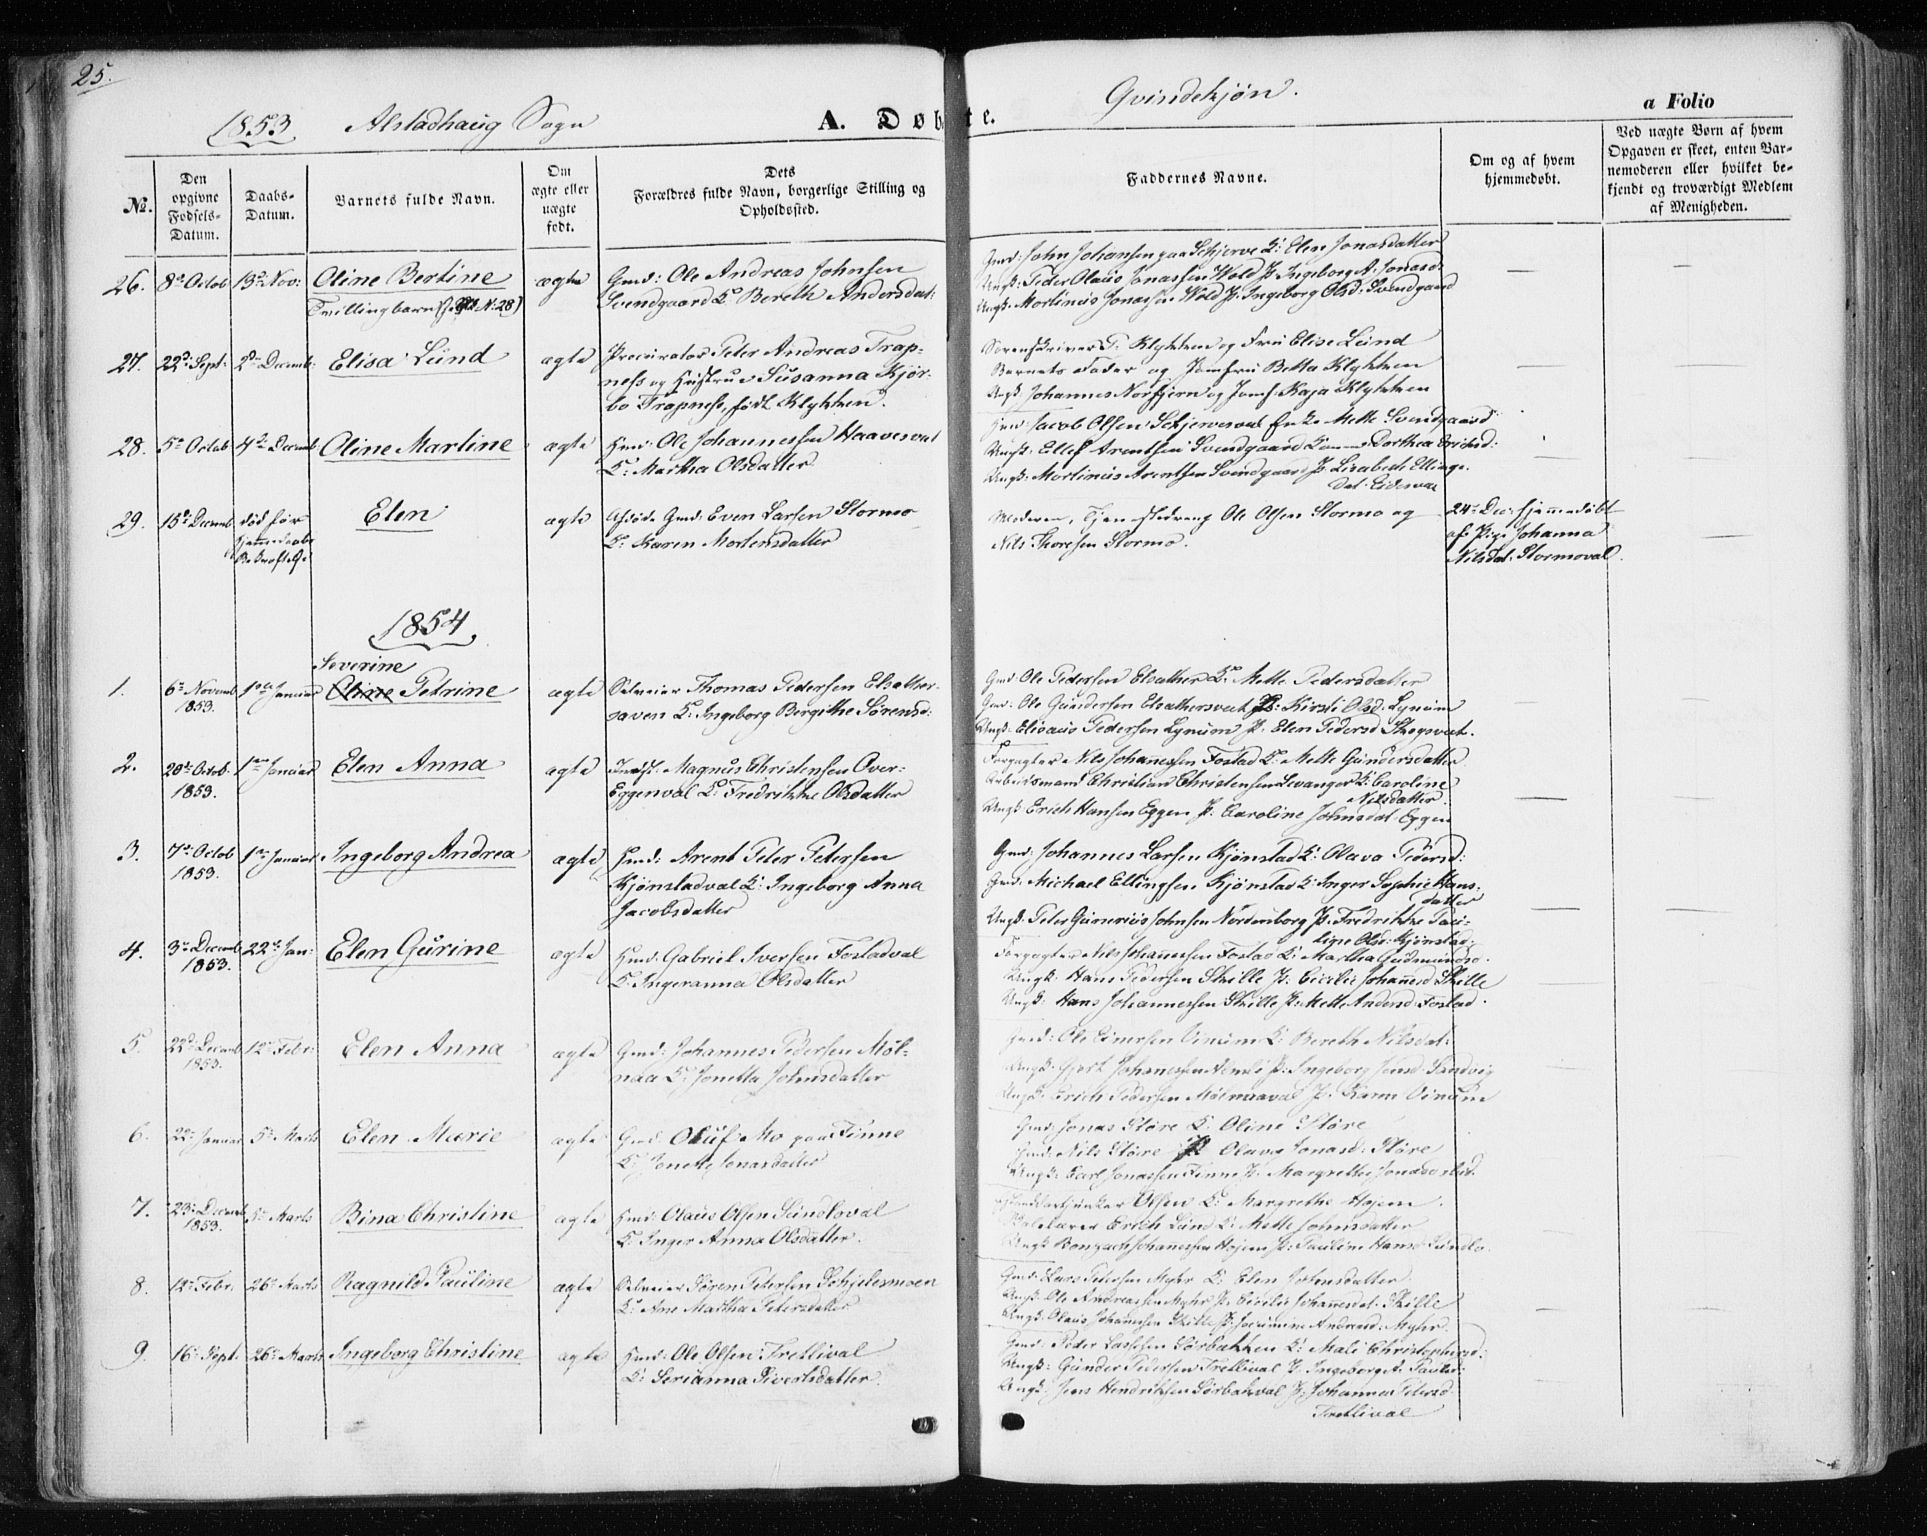 25.
1853 Alstadhaug Sogn
A. Døbte.
Qvindekjøn.
a Folio
No. | Den opgivne Fødsels-Datum. | Daabs-Datum. | Barnets fulde Navn. | Om ægte eller uægte født. | Dets Forældres fulde Navn, borgerlige Stilling og Opholdssted. | Faddernes Navne. | Om og af hvem hjemmedøbt. | Ved uægte Børn af hvem Opgaven er skeet, enten Barnemoderen eller hvilket bekjendt og troværdigt Medlem af Menigheden.
26. 8de Octob 13de Nov: Oline Bertine ægte Gmd: Ole Andreas Johnsen
Tvillingbarn
Svendgaard K: Bereth Andersdat:
Gmd: John Johansen paa Schjerve K: Elen Jonasdatter
Ungk: Peder Olaus Jonassen Wold P. Ingeborg A. Jonasd:
Ungk: Mortinus Jonassen Wold P. Ingeborg Olsd: Svendgaard
27. 22de Sept: 2den Decemb: Elisa Lund ægte Procurator Peter Andreas Trap-
ness og Hustru Susanna Kjør-
bo Trapness, født Klykken.
Sorenskriver P. Klykken og Frue Elise Lund
Barnets Fader og Jomfru Betta Klykken
Ungk Johannes Norfjern og Jomf: Kaja Klykken
28. 5te Octob 4de Decemb Oline Martine ægte Hmd: Ole Johannessen Haavesval
K: Martha Olsdatter
Hmd: Jacob Olsen Schjervesval Enke Mette Svendgaard
Ungk: Ellef Arentsen Svendgaard Dorthea
Ungk: Mortinus Arentsen Svendgaard P. Lisabeth Ellings-
dat:
29. 15de Decemb død før Elen ægte Afdøde Gmd: Even Larsen Stormo
K: Karen Mortensdatter
Moderen, Tjenestedreng Ole Olsen Stormo og
Nils Thoresen Stormo.
24de Dec: hjemmedøbt
af Pige Johanna
Nilsdat: Stormoval.
1854
Severine
1. 6te Novemb 1853. 1ste Januar Oline Petrine ægte Selveier Thomas Pedersen Elsather-
saven K: Ingeborg Bergithe Sørensd:
Gmd: Ole Pedersen Elsather K: Mette Pedersdatter
Gmd: Ole Gundersen Elsathersveet Kirsti Olsd: Lynum
Ungk: Elisæus Pedersen Lynum P. Elen Pedersd
2. 20de Octob. 1853. 1ste Januar Elen Anna ægte Indst. Magnus Christensen Over-
Eggenval K: Fredrikke Olsdatter
Forpagter Nils Johanessen Fostad K: Mette Gundersdatter
Arbeidsmand Christian Christensen Levanger K: Caroline
Nilsdatter.
Ungk: Erich Hansen Eggen P. Caroline Johnsdat: Eggen
3. 7de Octob 1853. 1ste Januar Ingeborg Andrea ægte Hmd: Arent Peter Petersen
Kjønstadval K: Ingeborg Anna
Jacobsdatter
Gmd: Johannes Larsen Kjønstad K: Olava Pedersd:
Gmd: Michael Ellingsen Kjønstad K: Inger Sophie Hans-
datter
Ungk: Peter Gunerius Johnsen Nordenborg P. Fredrikke Pau-
line Olsd: Kjønstad.
4. 3die Decemb 1853. 22de Jan: Elen Gurine ægte Hmd: Gabriel Iversen Fostadval
K: Ingeranna Olsdatter
Forpagter Nils Johanessen Fostad K: Martha Gudmundsd.
Ungk: Hans Pedersen Skille P. Cecilie Johanesd: Skille
Ungk: Hans Johannessen Skille P. Mette Andersd: Fostad.
5. 22de Decemb 1853. 12te Febr: Elen Anna ægte Gmd: Johannes Pedersen Møl-
naa K: Jonetta Johnsdatter
Gmd: Ole Einersen Vinum K: Bereth Nilsdat:
Ungk: Johanessen P. Ingeborg Sandvig
Ungk: Erich Pedersen Mølnaaval P. Karen Vinum
6. 22de Januar 5te Marts Elen Marie ægte Gmd: Oluf Mo paa Finne
K: Jonette Jonasdatter
Gmd: Jonas Støre K: Oline Støre
Gmd: Nils Støre Olava Jonasd: Støre
Ungk: Carl Jonassen Finne P. Margrethe
7. 23de Decemb 1853. 5te Marts Bina Christine ægte Hmd: Olaus Olsen Sundloval
K: Inger Anna Olsdatter.
Olsen K: Margrethe Hojem.
Erich Lund K: Mette Johnsdatter
Ungk Johanessen Hojem P. Pauline Hansd Sundlo.
8. 12te Febr: 26de Marts Ragnild Pauline ægte Selveier Søren Petersen Schjelesmoen
K: Ane Martha Petersdatter
Gmd: Lars Petersen Myhr K: Elen Johnsdatter
Ungk: Ole Andreassen Myhr P. Cecilie Johanesdat: Skille
Ungk: Olaus Johannesen Skille P. Andreasd: Myhr.
9. 16de Sept. 26de Marts Ingeborg Christine ægte Hmd: Ole Olsen Fretlival
K: Serianna Sivertsdatter.
Gmd: Peder Larsen Sørbakken K: Mali Christophersd:
Ungk: Gunder Pedersen Fretlival P. Ingeborg A. Paulsd:
Ungk: Jens Hendriksen Sørbakval P. Johanna Petersd.
Fretlival